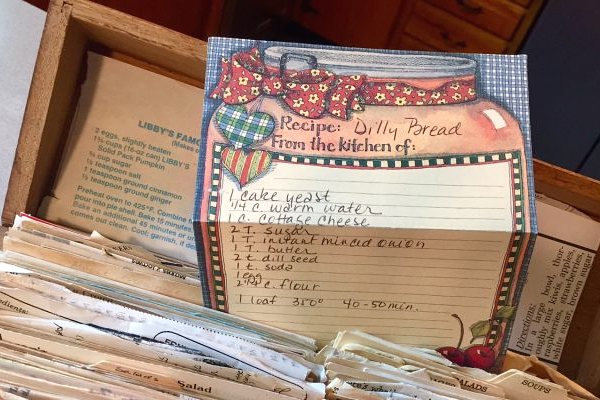 LIBBY'S
2 eggs, slightly beaten
1¾ cups (16-oz can) LIBBY'S
Solid Pack Pumpkin
¾ cup sugar
½ teaspoon salt
1 teaspoon ground cinnamon
½ teaspoon ground ginger
Preheat oven to 425°F. Combine
into pie shell. Bake 15
Bake an additional 45 minutes or
comes out clean. Cool, garnish, if
Recipe: Dilly Bread
From the kitchen of:
1 cake yeast
1/4 c. warm water
1 c. cottage cheese
2 T. sugar
1 T. instant minced onion
1 T. butter
2 t. dill seed
1 t. soda
1 egg
2 1/4 c. flour
1 loaf 350° 40-50 min.
Directions:
In a large bowl,
roughly mix
kiwis, apples,
raspberries, strawberries,
white sugar, brown sugar
Salad
SALADS
SOUPS